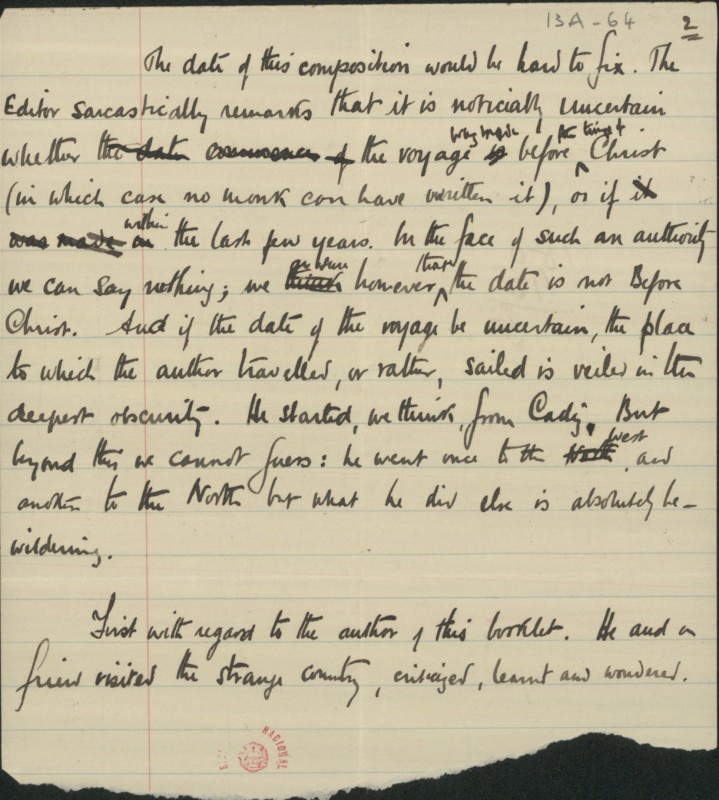 13A - 64 2
The date of this composition would be hard to fix. The
Editor sarcastically remarks that it is noticially uncertain
was made the times of
whether the date commences of the voyage is before Christ
(in which case no monk can have written it), or if it
within
was made on the last few years. In the face of such an authority
that
we can say nothing; we think however the date is not Before
Christ. And if the date of the voyage be uncertain, the place
to which the author travelled, or rather, sailed is veiled in the
deepest obscurity. He started, we think, from Cadiz. But
west
beyond this we cannot guess: he went once to the North, and
another to the North but what he did else is absolutely be-
wildering.
First with regard to the author of this booklet. He and a
friend visited the strange country, criticized, learnt and wondered.
NACIONAL